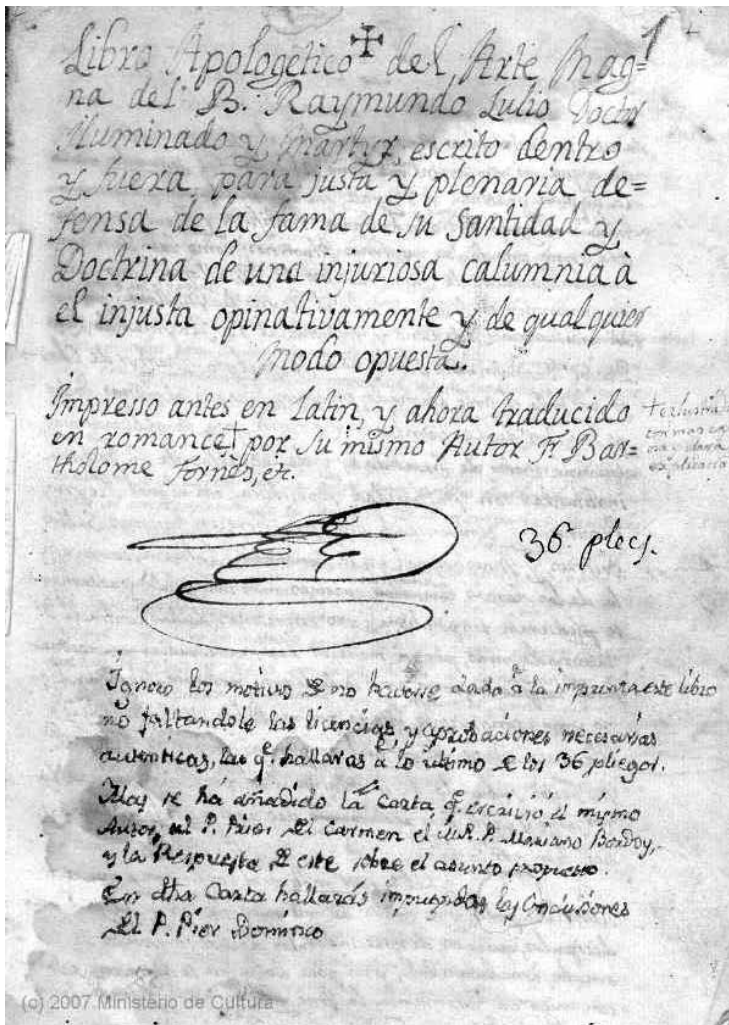 1
Libro Apologetico del Arte Mag=
na del B. Raymundo Lulio Doctor
Iluminado y Martyr, escrito dentro
y fuera, para justa y plenaria de=
fensa de la fama de su Santidad y
Doctrina de una injuriosa calumnia à
el injusta opinativamente y de qualquier
modo opuesta.
Impresso antes en Latin, y ahora traducido
en romance† por su mismo Autor Fr. Bar=
tholome Fornès, etc.
† e ilustrado
con mas
y clara
explicacio
36 plecs.
Ignoro los motivos de no haverse dado à la imprenta este libro
no faltandole las licencias, y aprobaciones necesarias
autenticas, las q. hallaras à lo ultimo de los 36 pliegos.
Mas se há añadido la Carta, q. escrivió el mismo
Autor, al P. Prior del Carmen el M.R.P. Mariano Bordoy,
y la Respuesta de este sobre el asunto propuesto.
En dha Carta hallarás impressas las Concusiones
del P. Domínico
(c) 2007 Ministerio de Cultura